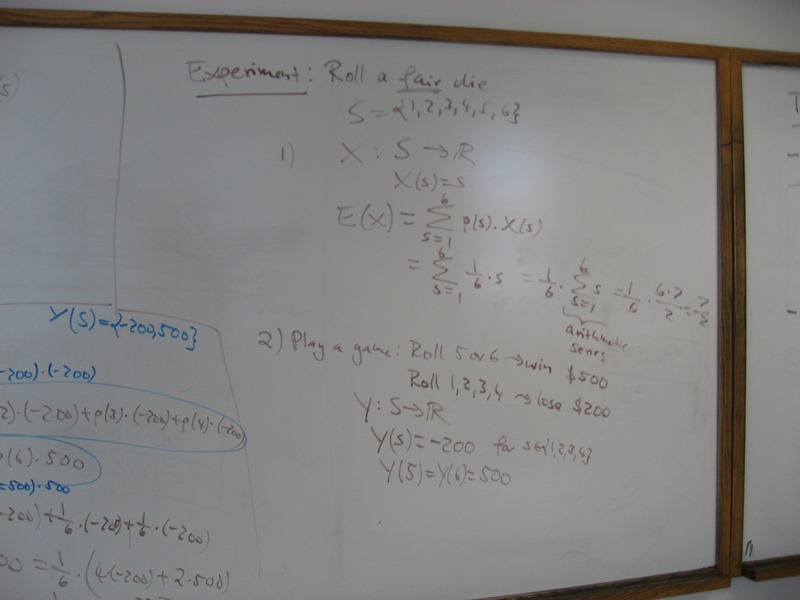 (s)
Experiment: Roll a fair die
S={1,2,3,4,5,6}
1) X: S→ℝ
X(s)=s
E(X) = ∑_{s=1}^{6} p(s)·X(s)
= ∑_{s=1}^{6} 1/6·s = 1/6·∑_{s=1}^{6} s = 1/6·6·7/2 = 7/2
arithmetic
series
2) Play a game: Roll 5 or 6 → win $500
Roll 1,2,3,4 → lose $200
Y: S→ℝ
Y(s)=-200 for s∈{1,2,3,4}
Y(5)=Y(6)=500
Y(S)={-200,500}
-200)·(-200)
2)·(-200)+p(3)·(-200)+p(4)·(-200)
(6)·500
=500)·500
-200)+1/6·(-200)+1/6·(-200)
00 = 1/6·(4·(-200)+2·500)